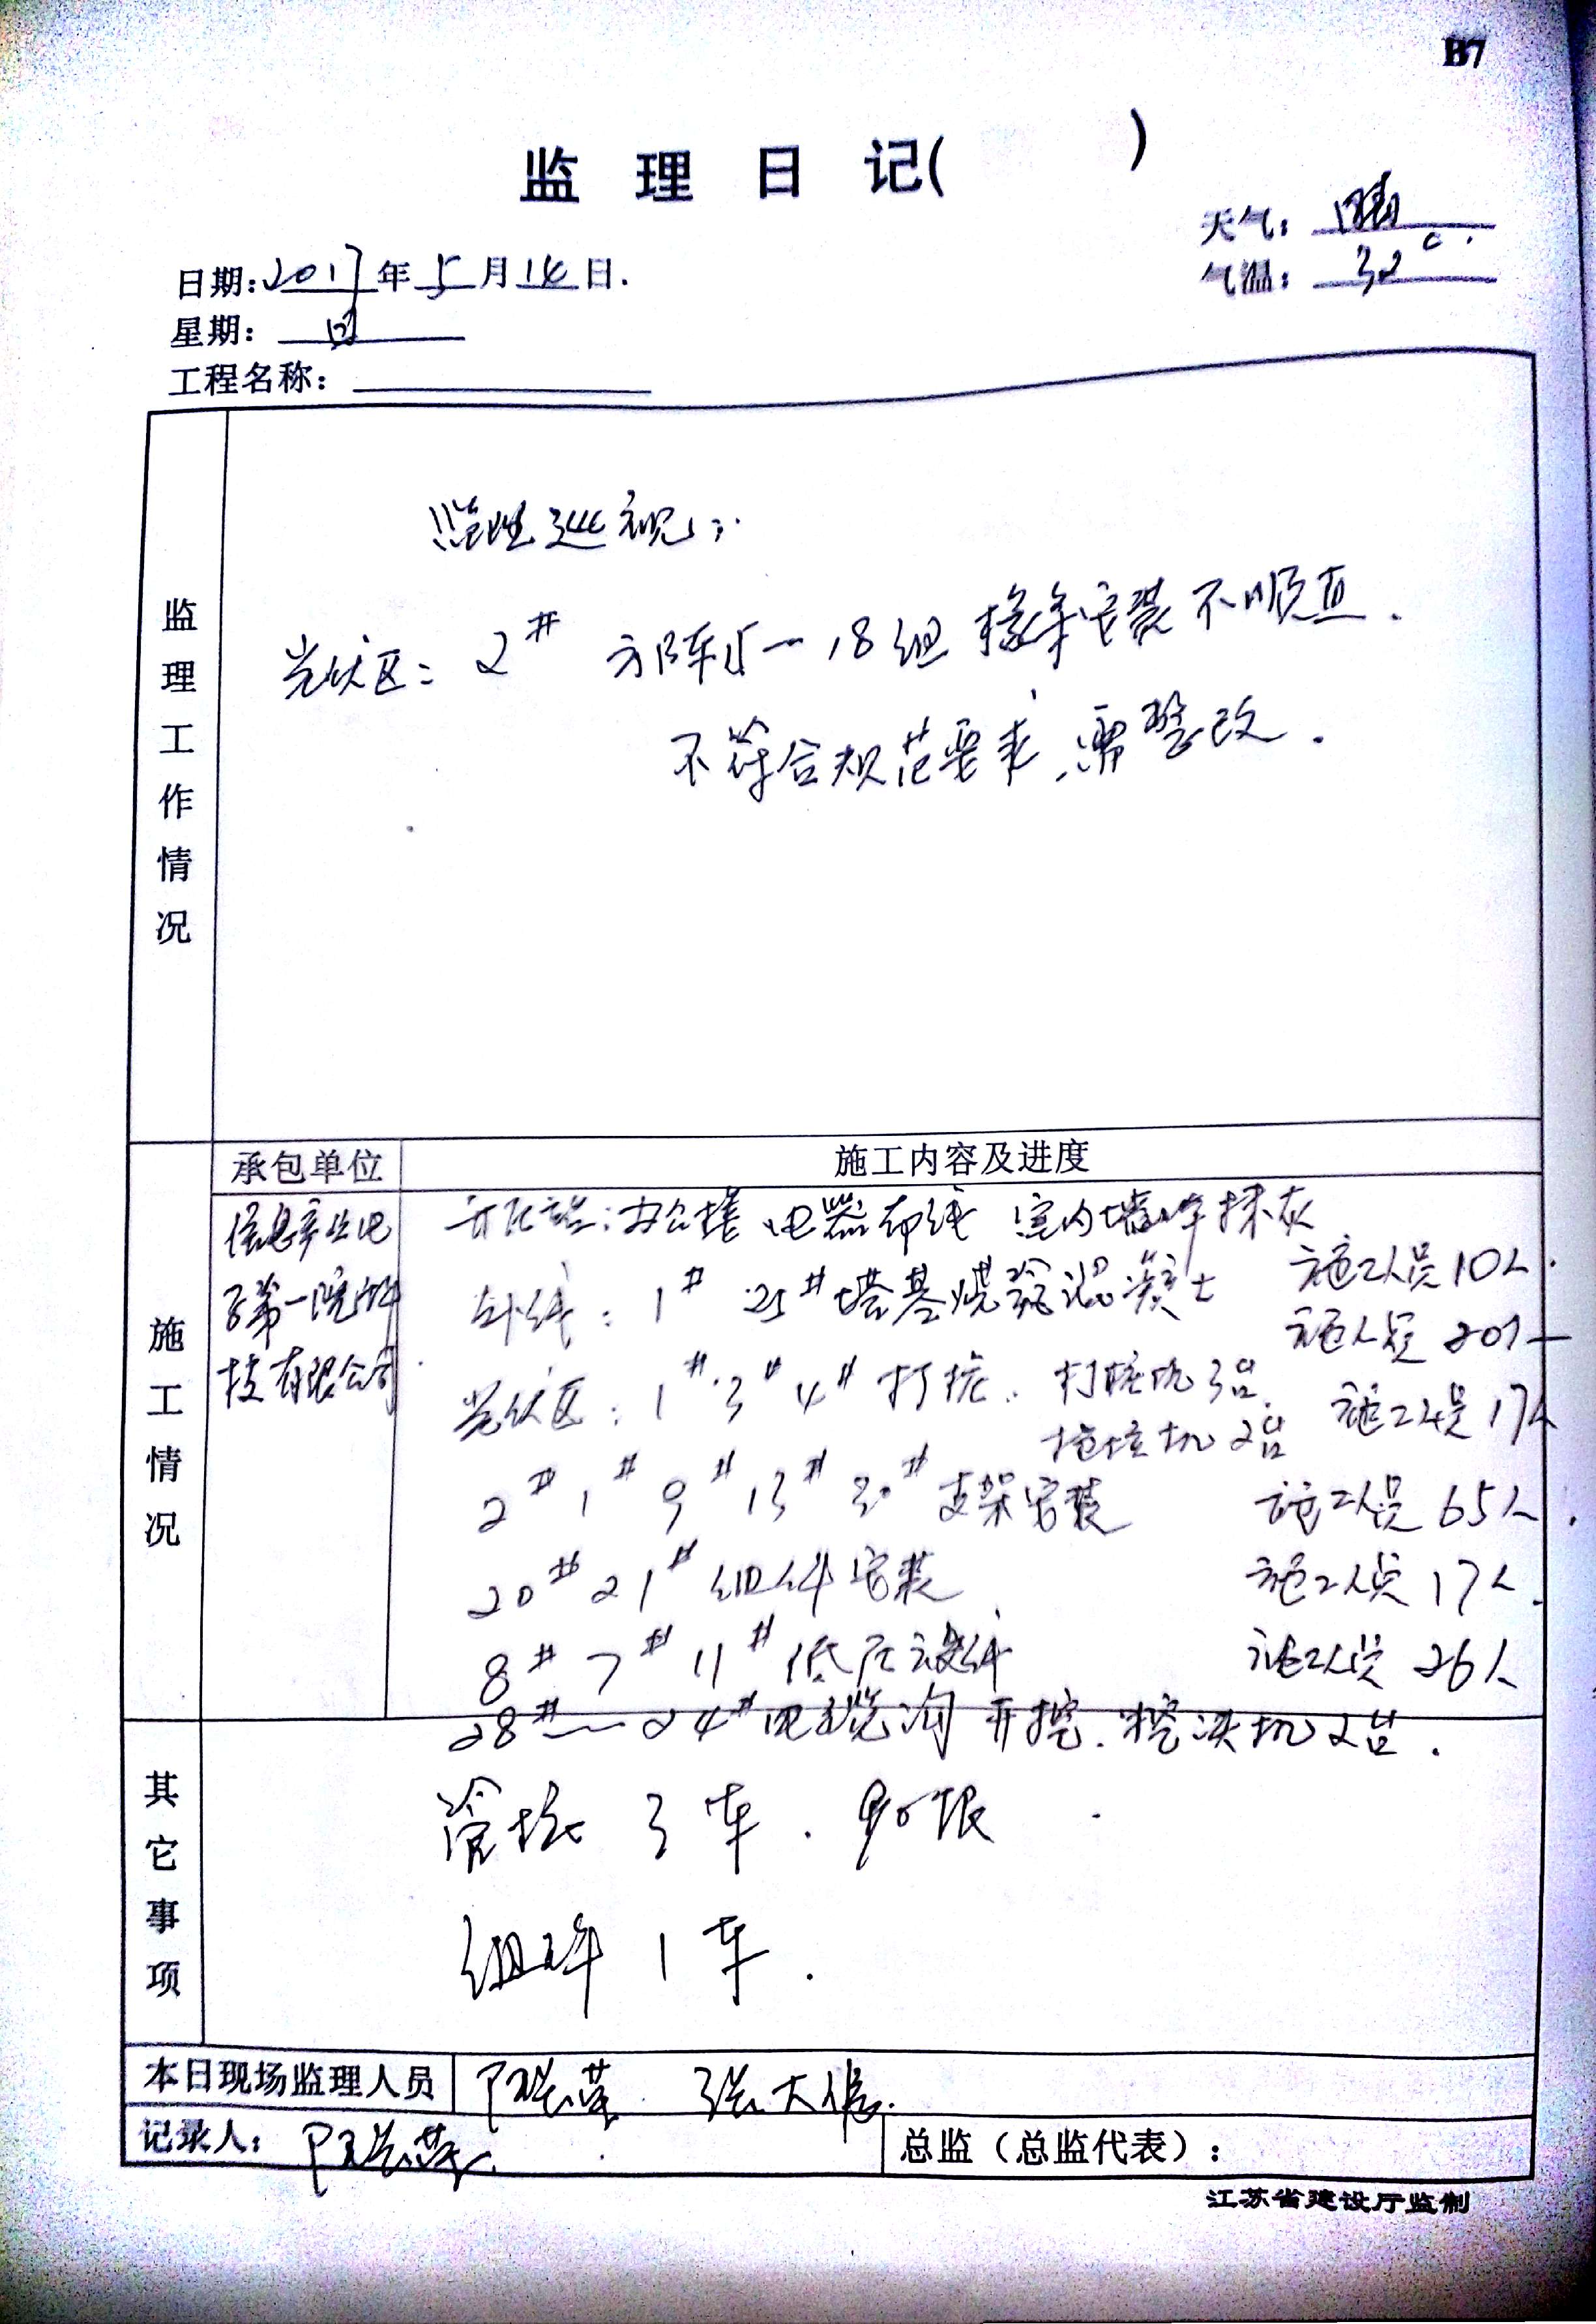 B7
监理日记( )
天气: 晴
日期: 2017年5月14日.
气温: 32℃.
星期: 日
工程名称:
监理工作情况
监理巡视:
光伏区: 2# 方阵15-18组檩条安装不顺直.
不符合规范要求,需整改.
承包单位
施工内容及进度
施工情况
信息产业电
子第一院
技有限公司
开压站:办公楼 电器布线 室内墙 抹灰
施工人员10人.
外线: 1# 25#塔基浇筑混凝土
施工人员 20人
光伏区: 1# 3# 4# 打桩. 打桩机3台.
机2台
施工人员17人
2# 1# 9# 13# 30# 支架安装
施工人员 65人.
20# 21# 组件安装
施工人员 17人.
8# 7# 11# 低压
施工人员 26人
28#~24#电缆沟开挖. 挖机2台.
其它事项
管桩 3车. 90根
组件 1车.
本日现场监理人员
张大
记录人:
总监(总监代表):
江苏省建设厅监制